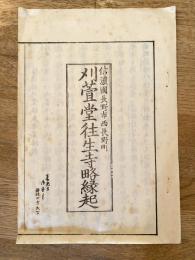 信濃國長野市西長野町
刈萱堂往生寺略縁起